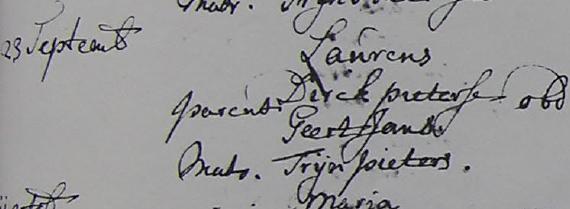 Matr. Trijn
23 Septemb
Laurens
parent: Dirck pieterse obd
Geert Jans
Matr. Trijn pieters.
Maria